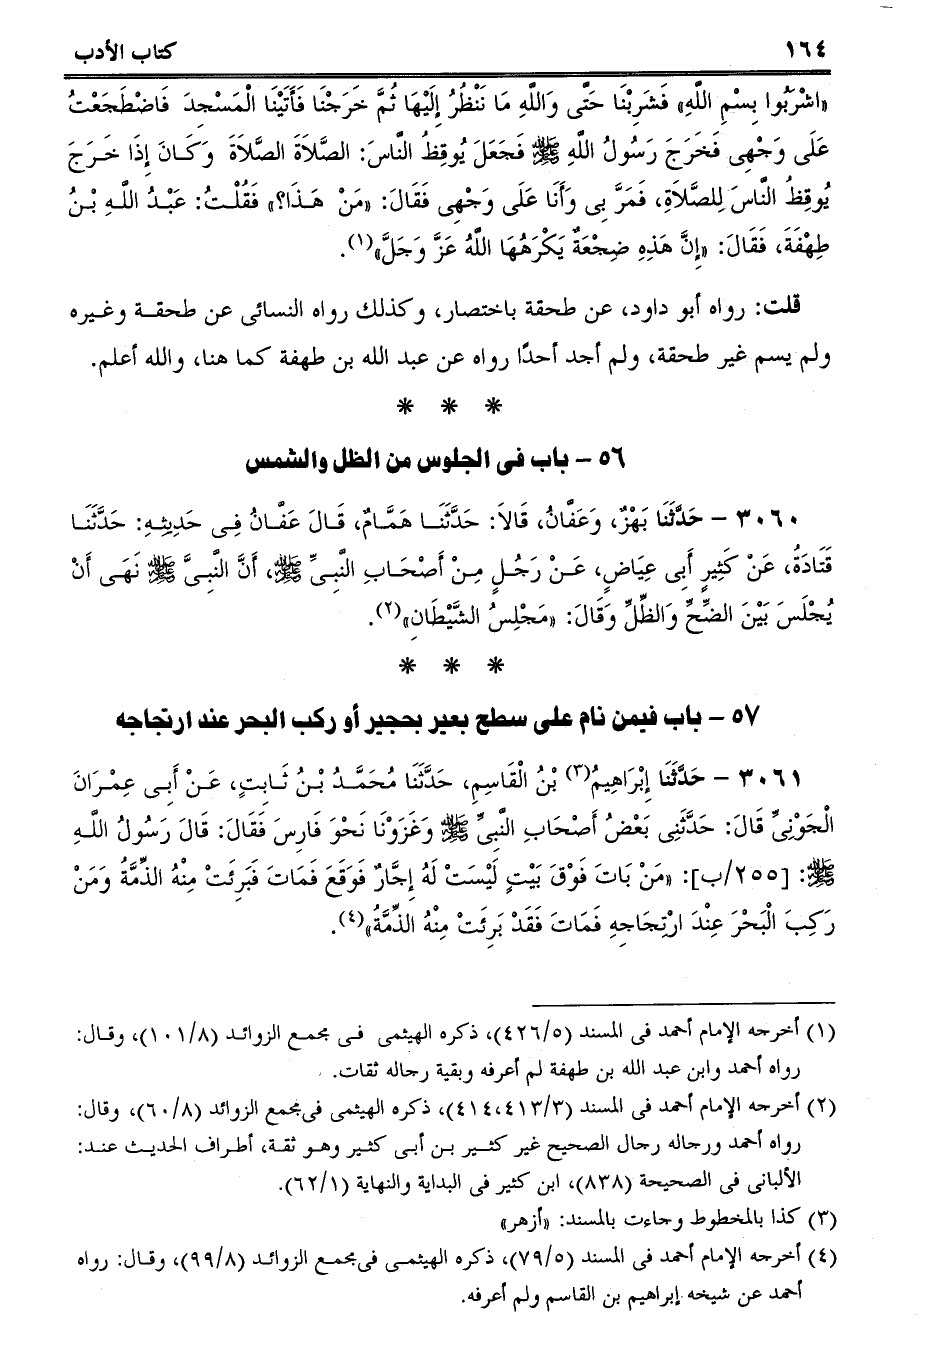 ١٦٤ كتاب الأدب
«اشْرَبُوا بِسْمِ اللَّهِ» فَشَرِبْنَا حَتَّى وَاللَّهِ مَا نَنْظُرُ إِلَيْهَا ثُمَّ خَرَجْنَا فَأَتَيْنَا الْمَسْجِدَ فَاضْطَجَعْتُ
عَلَى وَجْهِى فَخَرَجَ رَسُولُ اللَّهِ ﷺ فَجَعَلَ يُوقِظُ النَّاسَ: الصَّلاَةَ الصَّلاَةَ وَكَانَ إِذَا خَرَجَ
يُوقِظُ النَّاسَ لِلصَّلاَةِ، فَمَرَّ بِى وَأَنَا عَلَى وَجْهِى فَقَالَ: «مَنْ هَذَا؟» فَقُلْتُ: عَبْدُ اللَّهِ بْنُ
طِهْفَةَ، فَقَالَ: «إِنَّ هَذِهِ ضِجْعَةٌ يَكْرَهُهَا اللَّهُ عَزَّ وَجَلَّ»(١).
قلت: رواه أبو داود، عن طحقة باختصار، وكذلك رواه النسائى عن طحقة وغيره
ولم يسم غير طحقة، ولم أجد أحدًا رواه عن عبد الله بن طهفة كما هنا، والله أعلم.
* * *
٥٦ - باب فى الجلوس من الظل والشمس
٣٠٦٠ - حَدَّثَنَا بَهْزٌ، وَعَفَّانُ، قَالاَ: حَدَّثَنَا هَمَّامٌ، قَالَ عَفَّانُ فِى حَدِيثِهِ: حَدَّثَنَا
قَتَادَةُ، عَنْ كَثِيرٍ أَبِى عِيَاضٍ، عَنْ رَجُلٍ مِنْ أَصْحَابِ النَّبِىِّ ﷺ، أَنَّ النَّبِىَّ ﷺ نَهَى أَنْ
يُجْلَسَ بَيْنَ الضِّحِّ وَالظِّلِّ وَقَالَ: «مَجْلِسُ الشَّيْطَانِ»(٢).
* * *
٥٧ - باب فيمن نام على سطح بعير بحجير أو ركب البحر عند ارتجاجه
٣٠٦١ - حَدَّثَنَا إِبْرَاهِيمُ(٣) بْنُ الْقَاسِمِ، حَدَّثَنَا مُحَمَّدُ بْنُ ثَابِتٍ، عَنْ أَبِى عِمْرَانَ
الْجَوْنِىِّ قَالَ: حَدَّثَنِى بَعْضُ أَصْحَابِ النَّبِىِّ ﷺ وَغَزَوْنَا نَحْوَ فَارِسَ فَقَالَ: قَالَ رَسُولُ اللَّهِ
ﷺ: [٢٥٥/ب]: «مَنْ بَاتَ فَوْقَ بَيْتٍ لَيْسَتْ لَهُ إِجَّارٌ فَوَقَعَ فَمَاتَ فَبَرِئَتْ مِنْهُ الذِّمَّةُ وَمَنْ
رَكِبَ الْبَحْرَ عِنْدَ ارْتِجَاجِهِ فَمَاتَ فَقَدْ بَرِئَتْ مِنْهُ الذِّمَّةُ»(٤).
(١) أخرجه الإمام أحمد فى المسند (٤٢٦/٥)، ذكره الهيثمى فى مجمع الزوائد (١٠١/٨)، وقال:
رواه أحمد وابن عبد الله بن طهفة لم أعرفه وبقية رجاله ثقات.
(٢) أخرجه الإمام أحمد فى المسند (٤١٤،٤١٣/٣)، ذكره الهيثمى فى مجمع الزوائد (٦٠/٨)، وقال:
رواه أحمد ورجاله رجال الصحيح غير كثير بن أبى كثير وهو ثقة، أطراف الحديث عند:
الألبانى فى الصحيحة (٨٣٨)، ابن كثير فى البداية والنهاية (٦٢/١).
(٣) كذا بالمخطوط وجاءت بالمسند: «أزهر»
(٤) أخرجه الإمام أحمد فى المسند (٧٩/٥)، ذكره الهيثمى فى مجمع الزوائد (٩٩/٨)، وقال: رواه
أحمد عن شيخه إبراهيم بن القاسم ولم أعرفه.